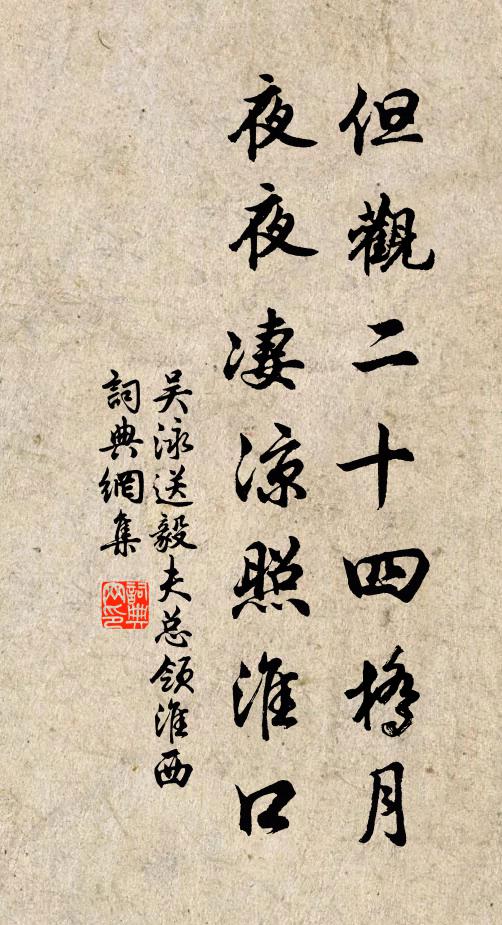 但觀二十四橋月
夜夜凄涼照淮口
吴泳送毅夫总领淮西
詞典網集
詞典網印